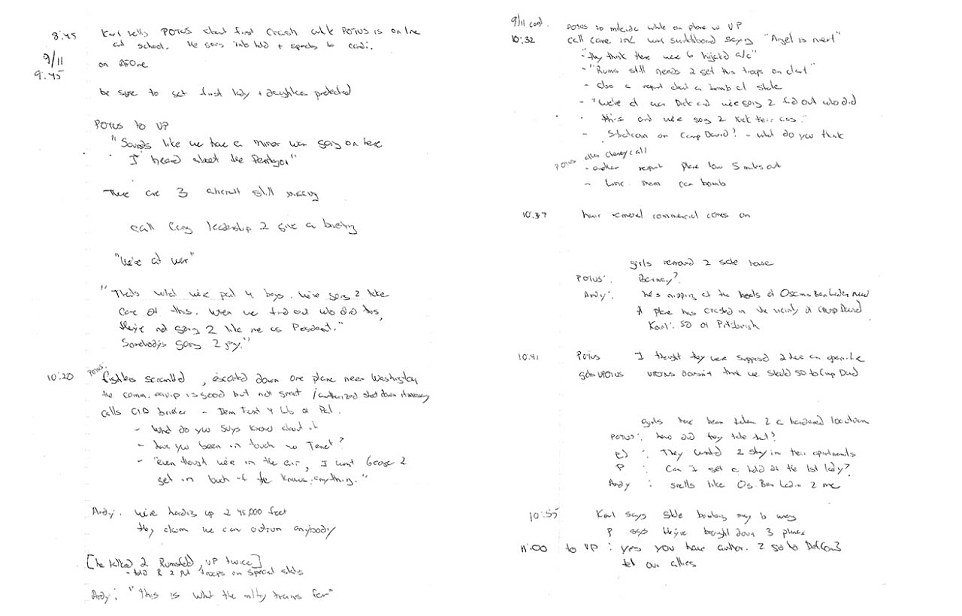 8:45 Karl tells POTUS about first crash while POTUS is on line
at school. He goes into hold + speaks to Condi.
9/11
9:45 on AFOne
be sure to get first lady + daughters protected
POTUS to VP
"Sounds like we have a minor war going on here
I heard about the Pentagon"
There are 3 aircraft still missing
call Cong leadership 2 give a briefing
"We're at war"
"That's what we're paid 4 boys. We're going 2 take
care of this. When we find out who did this,
they're not going 2 like me as President."
Somebody's going 2 pay."
POTUS:
10:20 fighters scrambled, escorted down one plane near Washington
the comm. equip is good but not great / authorized shot down if necessary
calls CIA briefer - Dem Front 4 Lib of Pal.
- what do you guys know about it
- have you been in touch w Tenet?
- "even though we're in the air, I want George 2
get in touch if he knows anything."
Andy: We're heading up 2 45,000 feet
they claim we can outrun anybody
[he talked 2 Rumsfeld, VP twice]
told R 2 put troops on special status
Andy: "This is what the mlty trains for"
9/11 cont. POTUS to while on plane w VP
10:32 call came in switchboard saying "Angel is next"
- "they think there were 6 hijacked a/c"
- "Rums still needs 2 get his troops on alert"
- also a report about a bomb at state
- "We're at war Dick and we're going 2 find out who did
this and we're going 2 kick their ass."
- Situation on Camp David? - What do you think
POTUS after cheney call
- another report plane low 5 miles out
- them car bomb
10:37 hair removal commercial comes on
girls removed 2 safe house
POTUS: Barney?
Andy: he's nipping at the heels of Osama Bin Laden now
A plane has crashed in the vicinity of Camp David
Karl: SO of Pittsburgh
10:41 POTUS I thought they were supposed 2 have an open line
VPOTUS doesn't think we should go to Camp David
girls have been taken 2 a hardened location
POTUS: how did they take that?
: They wanted 2 stay in their apartments
P : Can I get a hold of the 1st lady?
Andy : smells like Os Bin Laden 2 me
10:55 Karl says State bombing may b wrong
P says they've brought down 3 planes
11:00 to VP: yes you have author. 2 go to DefCon3
tell our allies